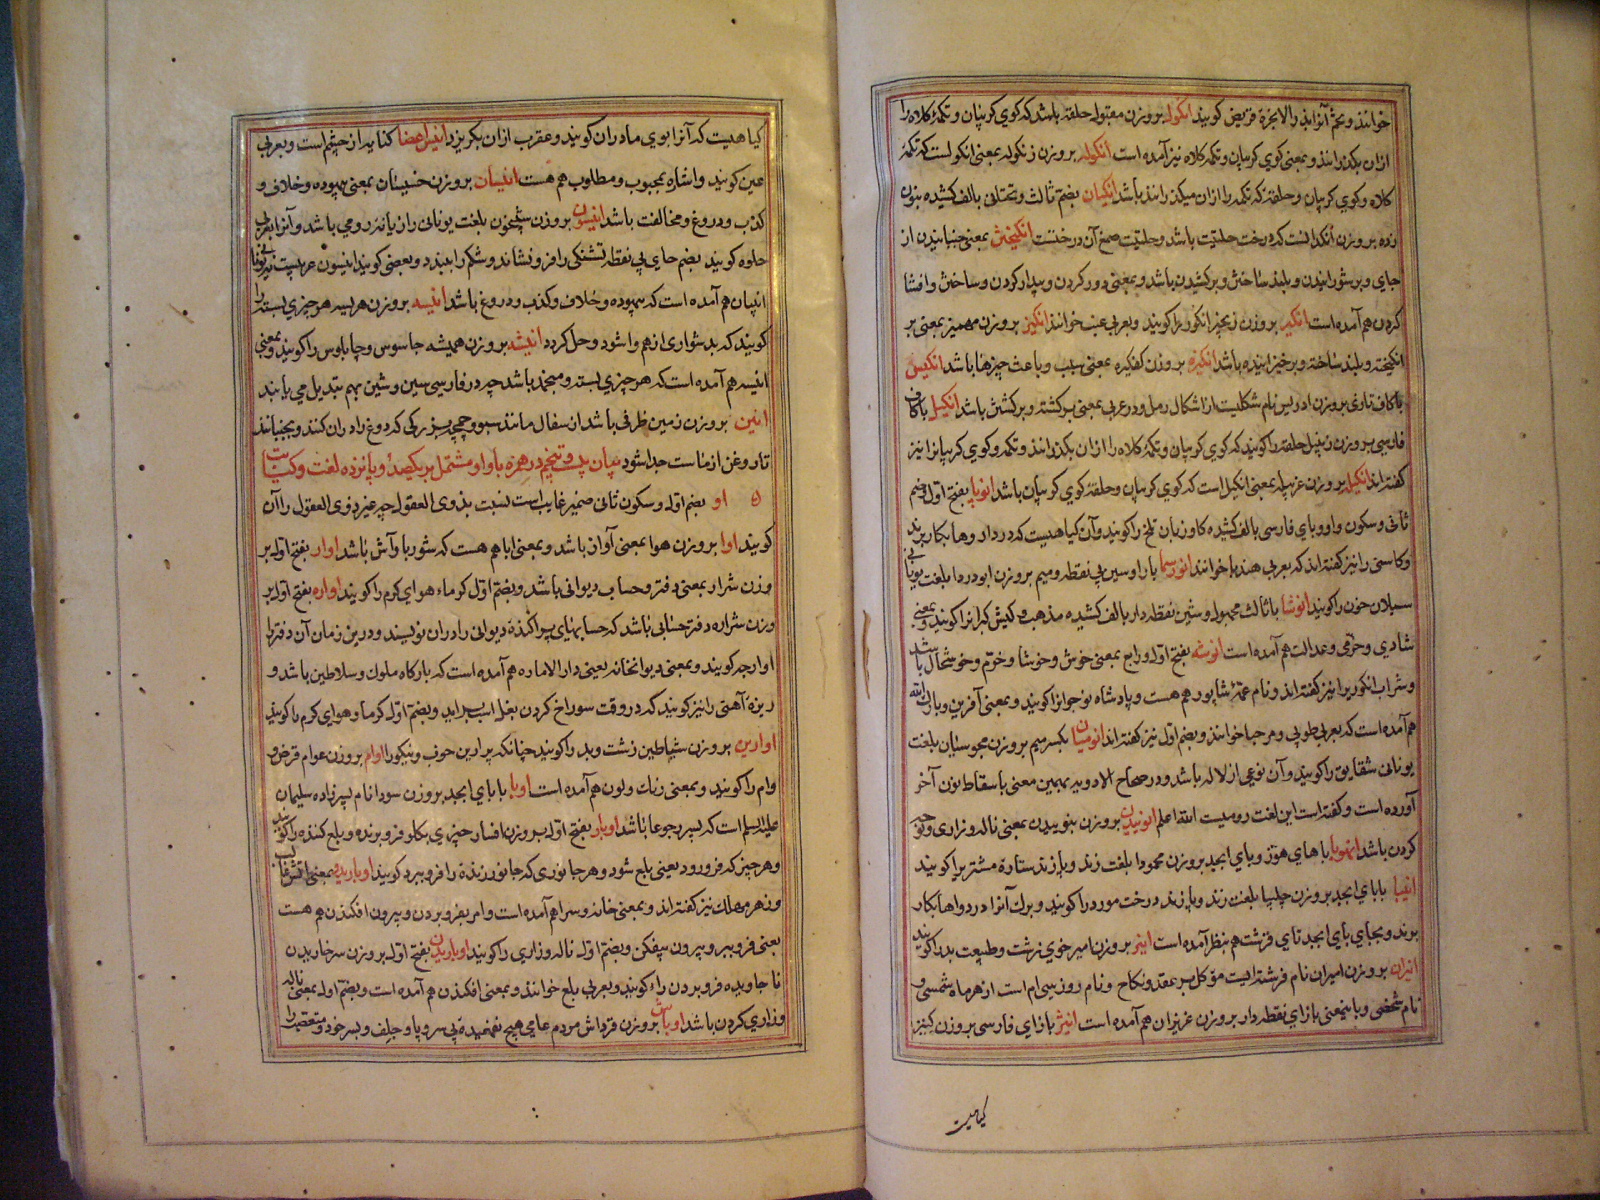 خوانند و تخم آنرا بذر الانجره قریض کویند انکوله بر وزن مقبوله حلقه باشد که کوی کریبان و تکمهٔ کلاه را
ازان بکذرانند و بمعنی کوی کریبان و تکمه کلاه نیز آمده است انکوله بر وزن زنکوله بمعنی انکولست که تکمهٔ
کلاه و کوی کریبان و حلقهٔ که تکمه را ازان میکذرانند باشد انکیان بضم ثالث و تحتانی بالف کشیده بنون
زده بر وزن انکدانست که درخت حلتیت باشد و حلتیت صمغ آن درختست انکیختن بمعنی جنبانیدن از
جای و برشورانیدن و بلند ساختن و برکشیدن باشد و بمعنی دور کردن و بیدار کردن و ساختن و افشا
کردن هم آمده است انکیر بر وزن زنجیر انکور را کویند و بعربی عنب خوانند انکیز بر وزن مهمیز بمعنی بر
انکیخته و بلند ساخته و برخیزانیده باشد انکیزه بر وزن کفکیره بمعنی سبب و باعث چیزها باشد انکیس
با کاف تازی بر وزن ادریس نام شکلیست از اشکال رمل و در عربی بمعنی برکشته و برکشتن باشد انکیل با کاف
فارسی بر وزن زنبیل حلقه را کویند که کوی کریبان و تکمهٔ کلاه را ازان بکذرانند و تکمه و کوی کریبانرا نیز
کفته اند انکیله بر وزن غربیله بمعنی انکیل است که کوی کریبان و حلقهٔ کوی کریبان باشد انوپا بفتح اول و ضم
ثانی و سکون واو و بای فارسی بالف کشیده کاو زبان تلخ را کویند و آن کیاهیست که در داروها بکار برند
و کاسنی را نیز کفته اند که بعربی هندبا خوانند انورسما با را و سین بی نقطه و میم بر وزن ابودردا بلغت یونانی
سیلان خون را کویند انوشا با ثالث مجهول و شین نقطه دار بالف کشیده مذهب و کیش کبرانرا کویند و بمعنی
شادی و خرمی و عدالت هم آمده است انوشه بفتح اول و رابع بمعنی خوش و خوشا و خرم و خوشحال باشد
و شراب انکوریرا نیز کفته اند و نام عمهٔ شاپور هم هست و پادشاه نوجوانرا کویند و بمعنی آفرین و بارک الله
هم آمده است که بعربی طوبی و مرحبا خوانند و بضم اول نیز کفته اند انومیان بکسر میم بر وزن مجوسیان بلغت
یونانی شقایق را کویند و آن نوعی از لاله باشد و در صحاح الادویه بهمین معنی باسقاط نون آخر
آورده است و کفته است این لغت رومیست الله اعلم انونیدن بر وزن بنوییدن بمعنی ناله و زاری و نوحه
کردن باشد انهوبا با های هوز و بای ابجد بر وزن محمودا بلغت زند و پازند ستارهٔ مشتریرا کویند
انیبا با بای ابجد بر وزن چلیپا بلغت زند و پازند درخت مورد را کویند و برک آنرا در دواها بکار
برند و بجای بای ابجد تای قرشت هم بنظر آمده است انیر بر وزن امیر خوی زشت و طبیعت بد را کویند
انیران بر وزن امیران نام فرشته ایست موکل بر عقد و نکاح و نام روز سی ام است از هر ماه شمسی و
نام شخصی و باین معنی بازای نقطه دار بر وزن عزیزان هم آمده است انیژ بازای فارسی بر وزن کنیز
کیاهیست
کیاهیست که آنرا بوی مادران کویند و عقرب ازان بکریزد انیس اعضا کنایه از چشم است و بعربی
عین کویند و اشاره بمحبوب و مطلوب هم هست انیسان بر وزن خسیسان بمعنی بیهوده و خلاف و
کذب و دروغ و مخالفت باشد انیسون بر وزن شبیخون بلغت یونانی رازیانهٔ رومی باشد و آنرا بعربی
حلوه کویند بضم حای بی نقطه تشنکی را فرو نشاند و شکم را ببندد و بعضی کویند انیسون عربیست نه یونانی
انیسان هم آمده است که بیهوده و خلاف و کذب و دروغ باشد انیسه بر وزن هریسه هر چیزی بسته را
کویند که بدشواری از هم وا شود و حل کردد انیشه بر وزن همیشه جاسوس و چاپلوس را کویند و بمعنی
انیسه هم آمده است که هر چیزی بسته و منجمد باشد چه در فارسی سین و شین بهم تبدیل می یابند
انین بر وزن زمین ظرفی باشد از سفال مانند سبو و خمچهٔ بزرکی که دوغ را دران کنند و بجنبانند
تا روغن از ماست جدا شود بیان بیست و پنجم در همزه با واو مشتمل بر یکصد و پانزده لغت و کنایت
او بضم اول و سکون ثانی ضمیر غایب است نسبت بذوی العقول چه غیر ذوی العقول را آن
کویند اوا بر وزن هوا بمعنی آواز باشد و بمعنی ابا هم هست که شوربا و آش باشد اوار بفتح اول بر
وزن شرار بمعنی دفتر و حساب دیوانی باشد و بضم اول کرما و هوای کرم را کویند اواره بفتح اول بر
وزن شراره دفتر حسابی باشد که حسابهای پراکندهٔ دیوانی را دران نویسند و درین زمان آن دفتر را
اوارجه کویند و بمعنی دیوانخانه یعنی دارالاماره هم آمده است که بارکاه ملوک و سلاطین باشد و
ریزهٔ آهنی را نیز کویند که در وقت سوراخ کردن نعل اسب برآید و بضم اول کرما و هوای کرم را کویند
اوارین بر وزن شیاطین زشت و بد را کویند چنانکه برارین خوب و نیکو را اوام بر وزن عوام قرض و
وام را کویند و بمعنی رنک و لون هم آمده است اوبا با بای ابجد بر وزن سودا نام پسرزاده سلیمان
علیه السلام است که پسر رجوعا باشد اوبار بفتح اول بر وزن افسار چیزی بکلو فرو برنده و بلع کننده را کویند
و هر چیز که فرو رود یعنی بلع شود و هر جانوری که جانور زنده را فرو ببرد کویند اوبارید
و زهر مهلک نیز کفته اند و بمعنی خانه و سرا هم آمده است و امر بفرو بردن و بیرون افکندن هم هست
یعنی فرو ببر و بیرون بیفکن و بضم اول ناله و زاری را کویند اوباریدن بفتح اول بر وزن سرخاریدن
ناجاویده فرو بردن را کویند و بعربی بلع خوانند و بمعنی افکندن هم آمده است و بضم اول بمعنی ناله
و زاری کردن باشد اوباش بر وزن قرداش مردم عامی هیچ نفهمیدهٔ بی سر و پا و جلف و بسر خود و متعصب را